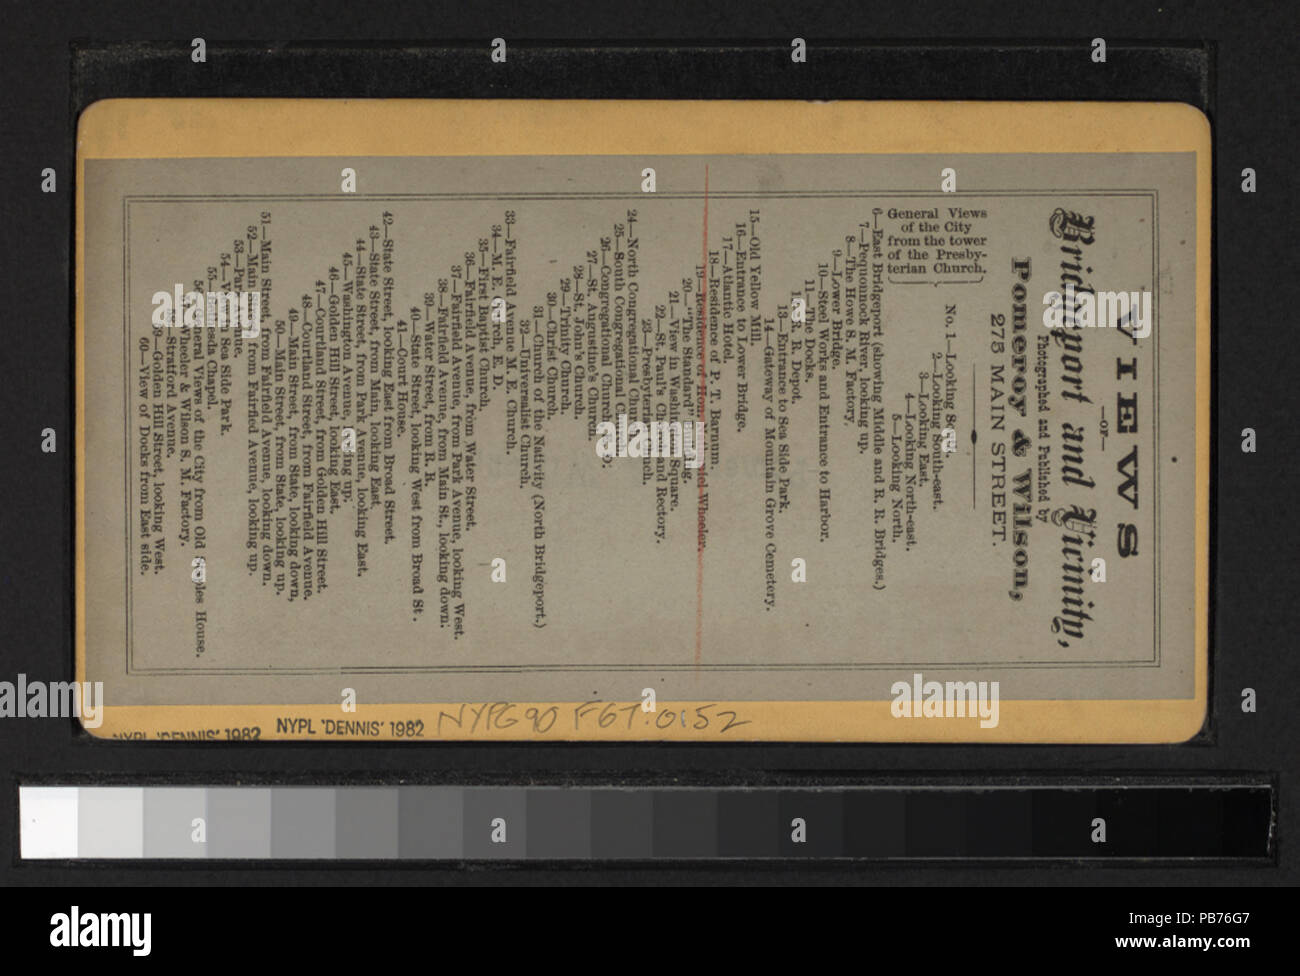 VIEWS
—OF—
Bridgeport and Vicinity,
Photographed and Published by
Pomeroy & Wilson,
275 MAIN STREET.
General Views
of the City
from the tower
of the Presby-
terian Church.
No. 1—Looking South.
2—Looking South-east.
3—Looking East.
4—Looking North-east.
5—Looking North.
6—East Bridgeport (showing Middle and R. R. Bridges.)
7—Pequonnock River, looking up.
8—The Howe S. M. Factory.
9—Lower Bridge.
10—Steel Works and Entrance to Harbor.
11—The Docks.
12—R. R. Depot.
13—Entrance to Sea Side Park.
14—Gateway of Mountain Grove Cemetery.
15—Old Yellow Mill.
16—Entrance to Lower Bridge.
17—Atlantic Hotel.
18—Residence of P. T. Barnum.
19—Residence of Hon. Nathaniel Wheeler.
20—"The Standard" Building.
21—View in Washington Square.
22—St. Paul's Church and Rectory.
23—Presbyterian Church.
24—North Congregational Church.
25—South Congregational Church.
26—Congregational Church,
27—St. Augustine's Church.
28—St. John's Church.
29—Trinity Church.
30—Christ Church.
31—Church of the Nativity (North Bridgeport.)
32—Universalist Church.
33—Fairfield Avenue M. E. Church.
34—M. E. Church, E. D.
35—First Baptist Church.
36—Fairfield Avenue, from Water Street.
37—Fairfield Avenue, from Park Avenue, looking West.
38—Fairfield Avenue, from Main St., looking down.
39—Water Street, from R. R.
40—State Street, looking West from Broad St.
41—Court House.
42—State Street, looking East from Broad Street.
43—State Street, from Main, looking East.
44—State Street, from Park Avenue, looking East.
45—Washington Avenue, looking up.
46—Golden Hill Street, looking East.
47—Courtland Street, from Golden Hill Street.
48—Courtland Street, from Fairfield Avenue.
49—Main Street, from State, looking down,
50—Main Street, from State, looking up.
51—Main Street, from Fairfield Avenue, looking down.
52—Main Street, from Fairfied Avenue, looking up.
53—Park Avenue.
54—View in Sea Side Park.
55—Bethesda Chapel.
56—General Views of the City from Old Steeples House.
57—Wheeler & Wilson S. M. Factory.
58—Stratford Avenue.
59—Golden Hill Street, looking West.
60—View of Docks from East side.
NYPL 'DENNIS' 1982
NYPL 'DENNIS' 1982
NYPG90 F67:0152
alamy
alamy
alamy
Image ID: PB76G7
www.alamy.com